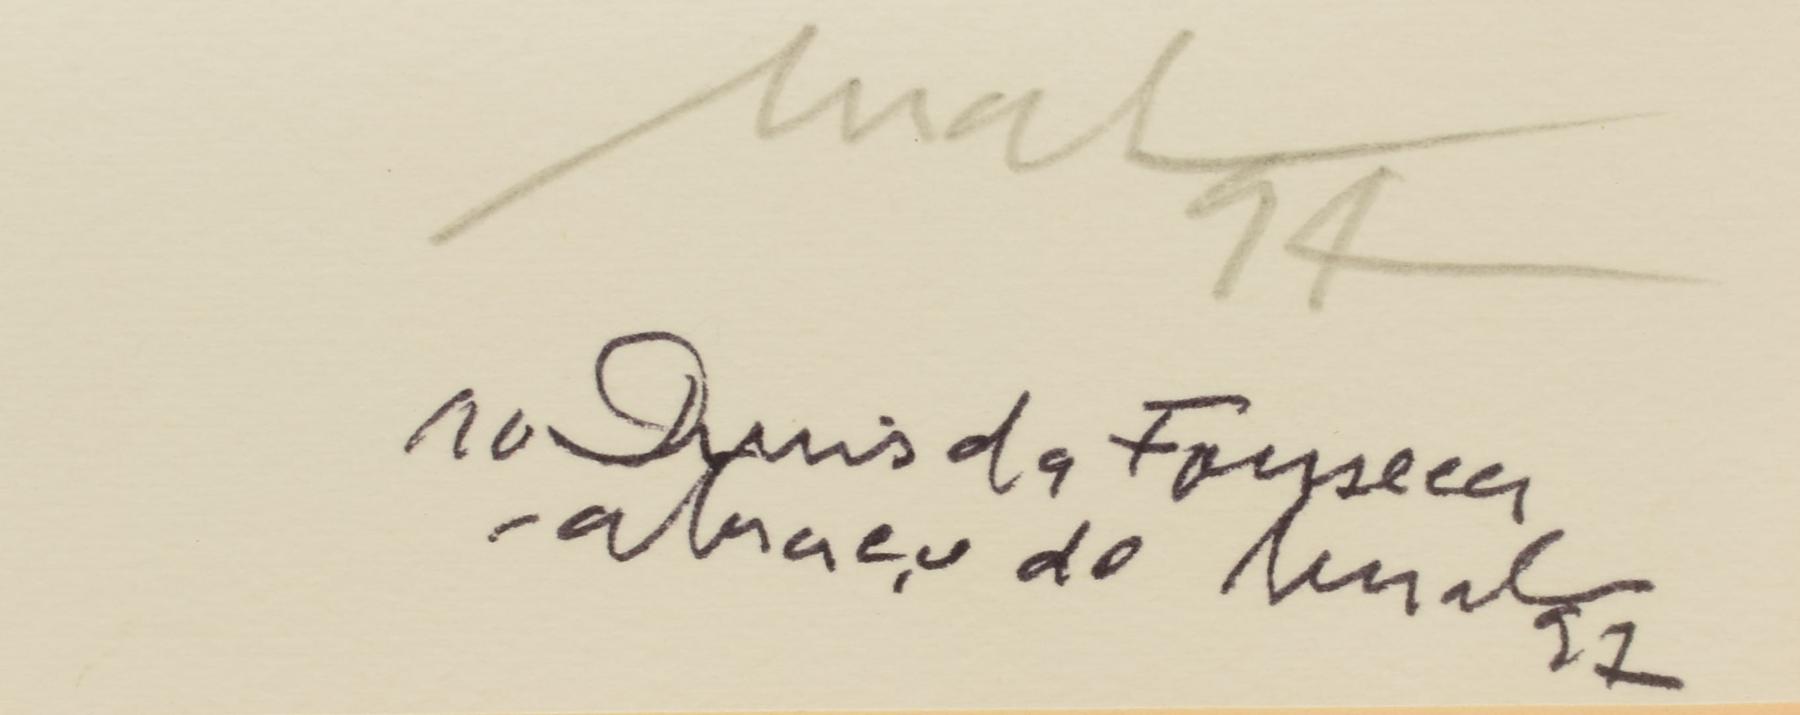 94
ao Dinis da Fonseca
- abraço do
97